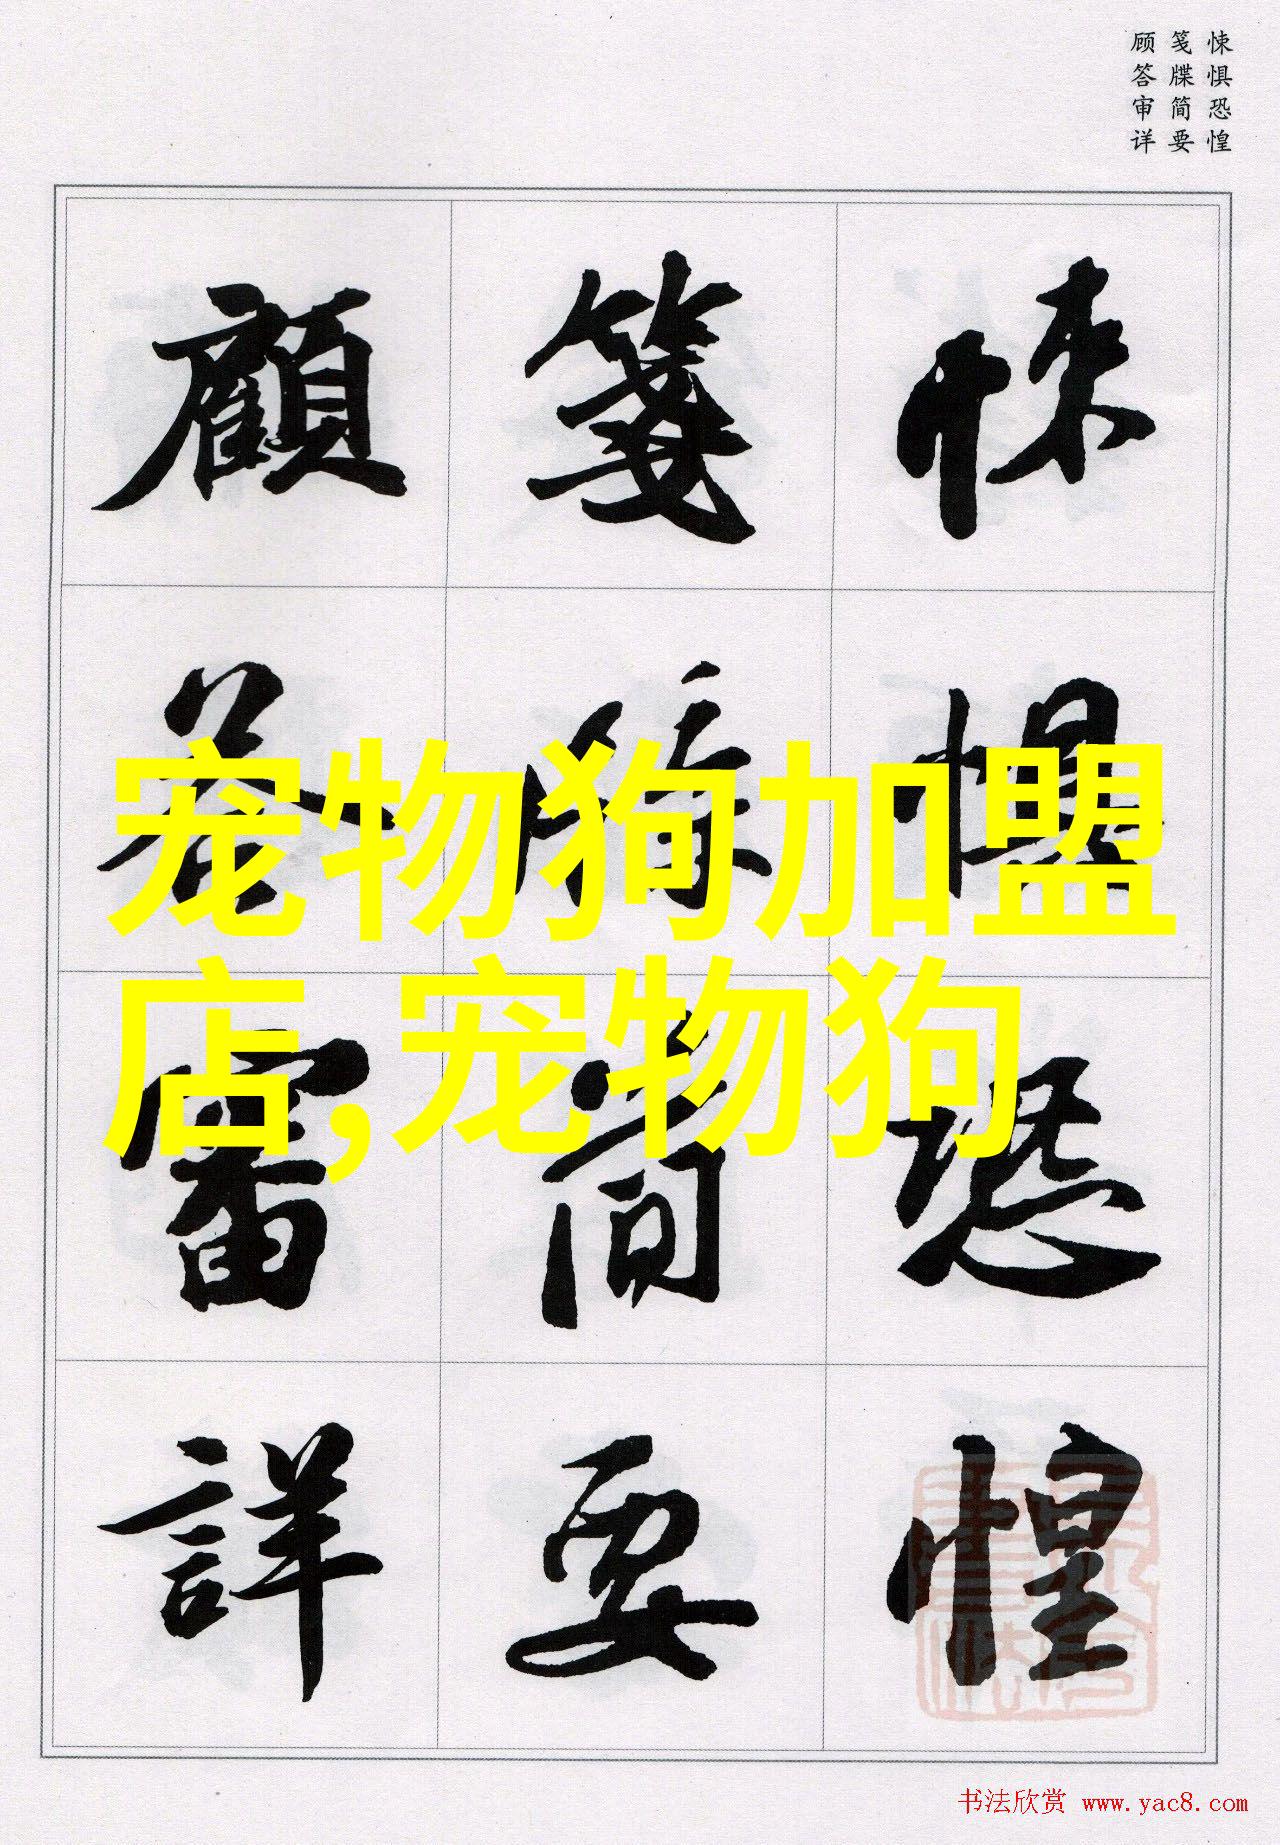 悚惧恐惶
笺牒简要
顾答审详
悚惧恐惶
箋牒簡要
顧答審詳
宠物狗加盟
店,宠物狗
书法欣赏 www.yac8.com